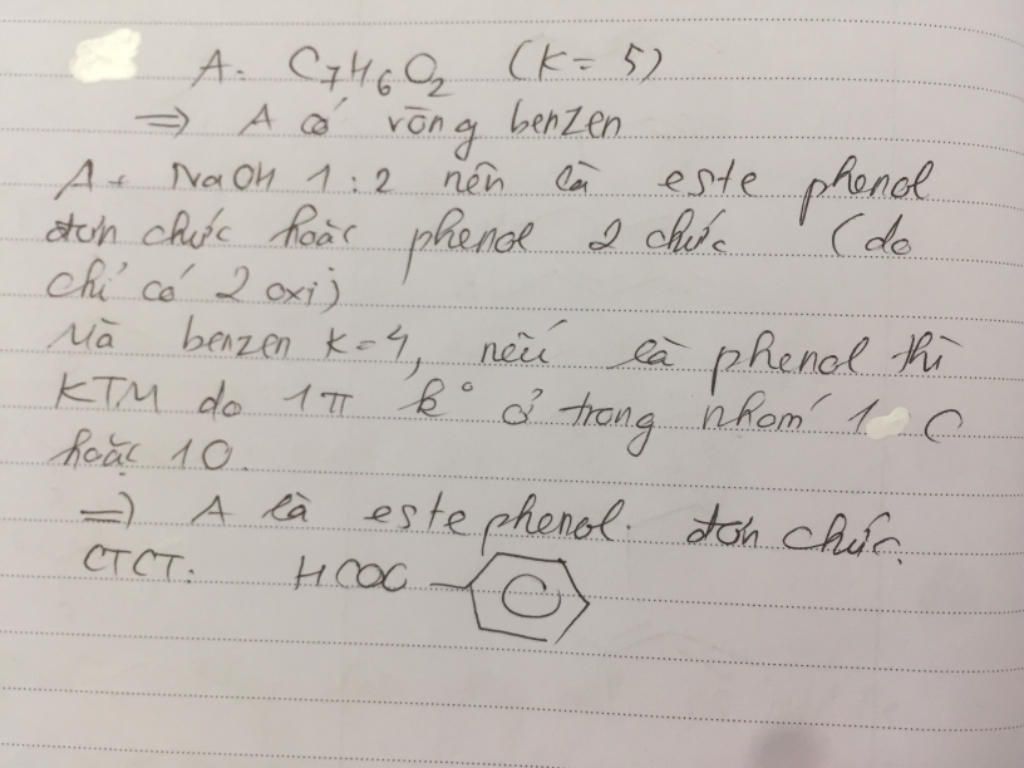 A: C7H6O2 (K = 5)
=> A có vòng benzen
A + NaOH 1:2 nên là este phenol
đơn chức hoặc phenol 2 chức (do
chỉ có 2 oxi)
Mà benzen K=4, nếu là phenol thì
KTM do 1π k° ở trong nhóm 1 C
hoặc 1O.
=> A là este phenol. đơn chức.
CTCT: HCOC